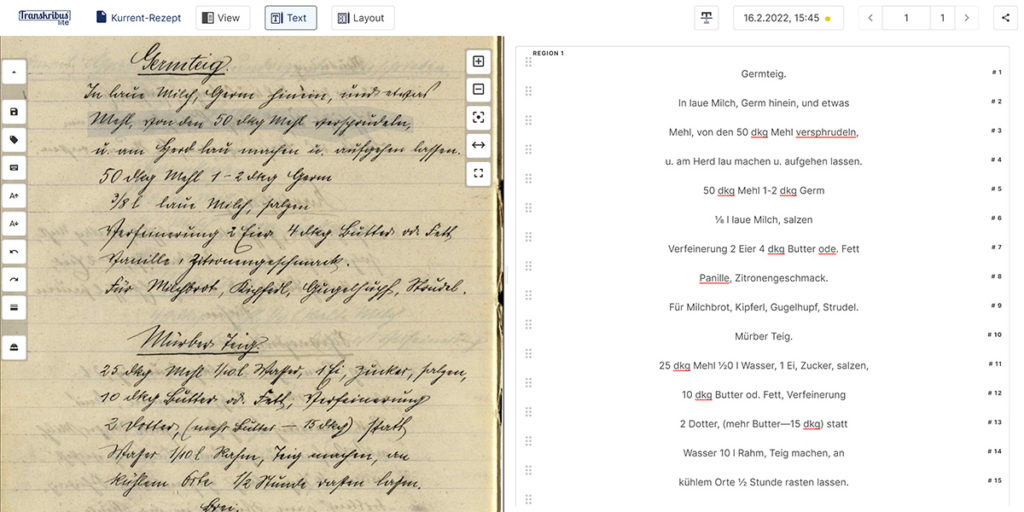 Transkribus lite
Kurrent-Rezept View Text Layout 16.2.2022, 15:45 1 1
Germteig.
In laue Milch, Germ hinein, und etwas
Mehl, von den 50 dkg Mehl versprudeln,
u. am Herd lau machen u. aufgehen lassen.
50 dkg Mehl 1-2 dkg Germ
3/8 l laue Milch, salzen
Verfeinerung 2 Eier 4 dkg Butter od. Fett
Vanille, Zitronengeschmack.
Für Milchbrot, Kipferl, Gugelhupf, Strudel.
Mürber Teig.
25 dkg Mehl 1/10 l Wasser, 1 Ei, Zucker, salzen,
10 dkg Butter od. Fett, Verfeinerung
2 Dotter, (mehr Butter — 15 dkg) statt
Wasser 1/10 l Rahm, Teig machen, an
kühlem Orte 1/2 Stunde rasten lassen.
REGION 1
Germteig. # 1
In laue Milch, Germ hinein, und etwas # 2
Mehl, von den 50 dkg Mehl versphrudeln, # 3
u. am Herd lau machen u. aufgehen lassen. # 4
50 dkg Mehl 1-2 dkg Germ # 5
⅛ l laue Milch, salzen # 6
Verfeinerung 2 Eier 4 dkg Butter ode. Fett # 7
Panille, Zitronengeschmack. # 8
Für Milchbrot, Kipferl, Gugelhupf, Strudel. # 9
Mürber Teig. # 10
25 dkg Mehl ½0 l Wasser, 1 Ei, Zucker, salzen, # 11
10 dkg Butter od. Fett, Verfeinerung # 12
2 Dotter, (mehr Butter—15 dkg) statt # 13
Wasser 10 l Rahm, Teig machen, an # 14
kühlem Orte ½ Stunde rasten lassen. # 15